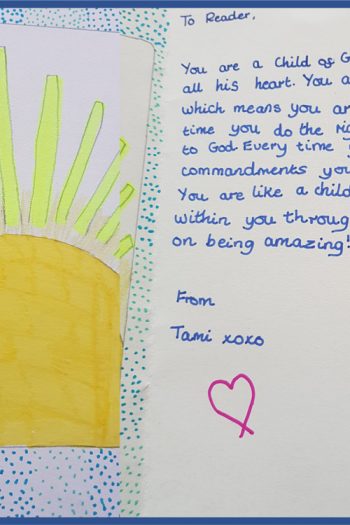 To Reader,
You are a Child of G
all his heart. You a
which means you ar
time you do the rig
to God. Every time y
commandments you
You are like a child
within you throug
on being amazing!
From
Tami xoxo